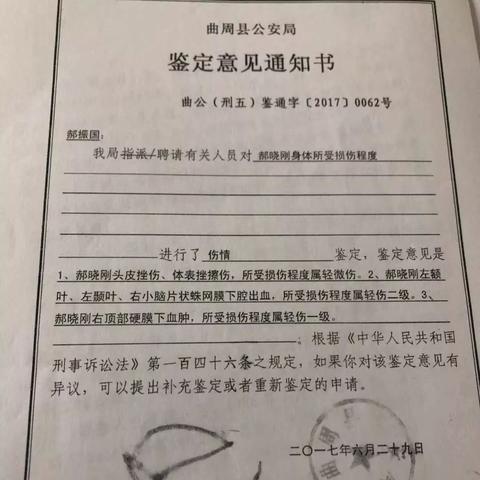 曲周县公安局
鉴定意见通知书
曲公（刑五）鉴通字〔2017〕0062号
郝振国：
我局指派/聘请有关人员对 郝晓刚身体所受损伤程度
进行了 伤情 鉴定，鉴定意见是
1、郝晓刚头皮挫伤、体表挫擦伤，所受损伤程度属轻微伤。2、郝晓刚左额
叶、左颞叶、右小脑片状蛛网膜下腔出血，所受损伤程度属轻伤二级。3、
郝晓刚右顶部硬膜下血肿，所受损伤程度属轻伤一级。
。根据《中华人民共和国
刑事诉讼法》第一百四十六条之规定，如果你对该鉴定意见有
异议，可以提出补充鉴定或者重新鉴定的申请。
曲周县
二〇一七年六月二十九日